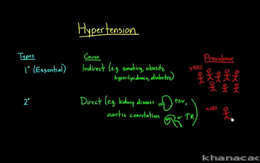 Hypertension
Types Cause Prevalence
1° (Essential) Indirect (e.g. smoking, obesity,
hyperlipidemia, diabetes)
2° Direct (e.g. kidney disease
aortic coarctation
khanacad